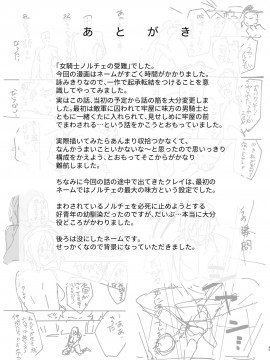 あとがき
『女騎士ノルチェの受難』でした。
今回の漫画はネームがすごく時間がかかりました。
詠みきりなので、一作で起承転結をつけることを意
識してやってみました。
実はこの話、当初の予定から話の筋を大分変更しま
した。最初は敵軍に囚われて牢屋に味方の男騎士と
ともに一緒くたに入れられて、見せしめに牢屋の前
でまわされる…という話をかこうとおもっていました。
実際描いてみたらあんまり収拾つかなくて、
なんかうまいこといかないな~と思ったので思いっきり
構成をかえよう、とおもってそこからがかなり
難航しました。
ちなみに今回の話の途中で出てきたクレイは、最初の
ネームではノルチェの最大の味方という設定でした。
まわされているノルチェを必死に止めようとする
好青年の幼馴染だったのですが、だいぶ…本当に大分
役どころがかわりました。
後ろは没にしたネームです。
せっかくなので背景になっていただきました。